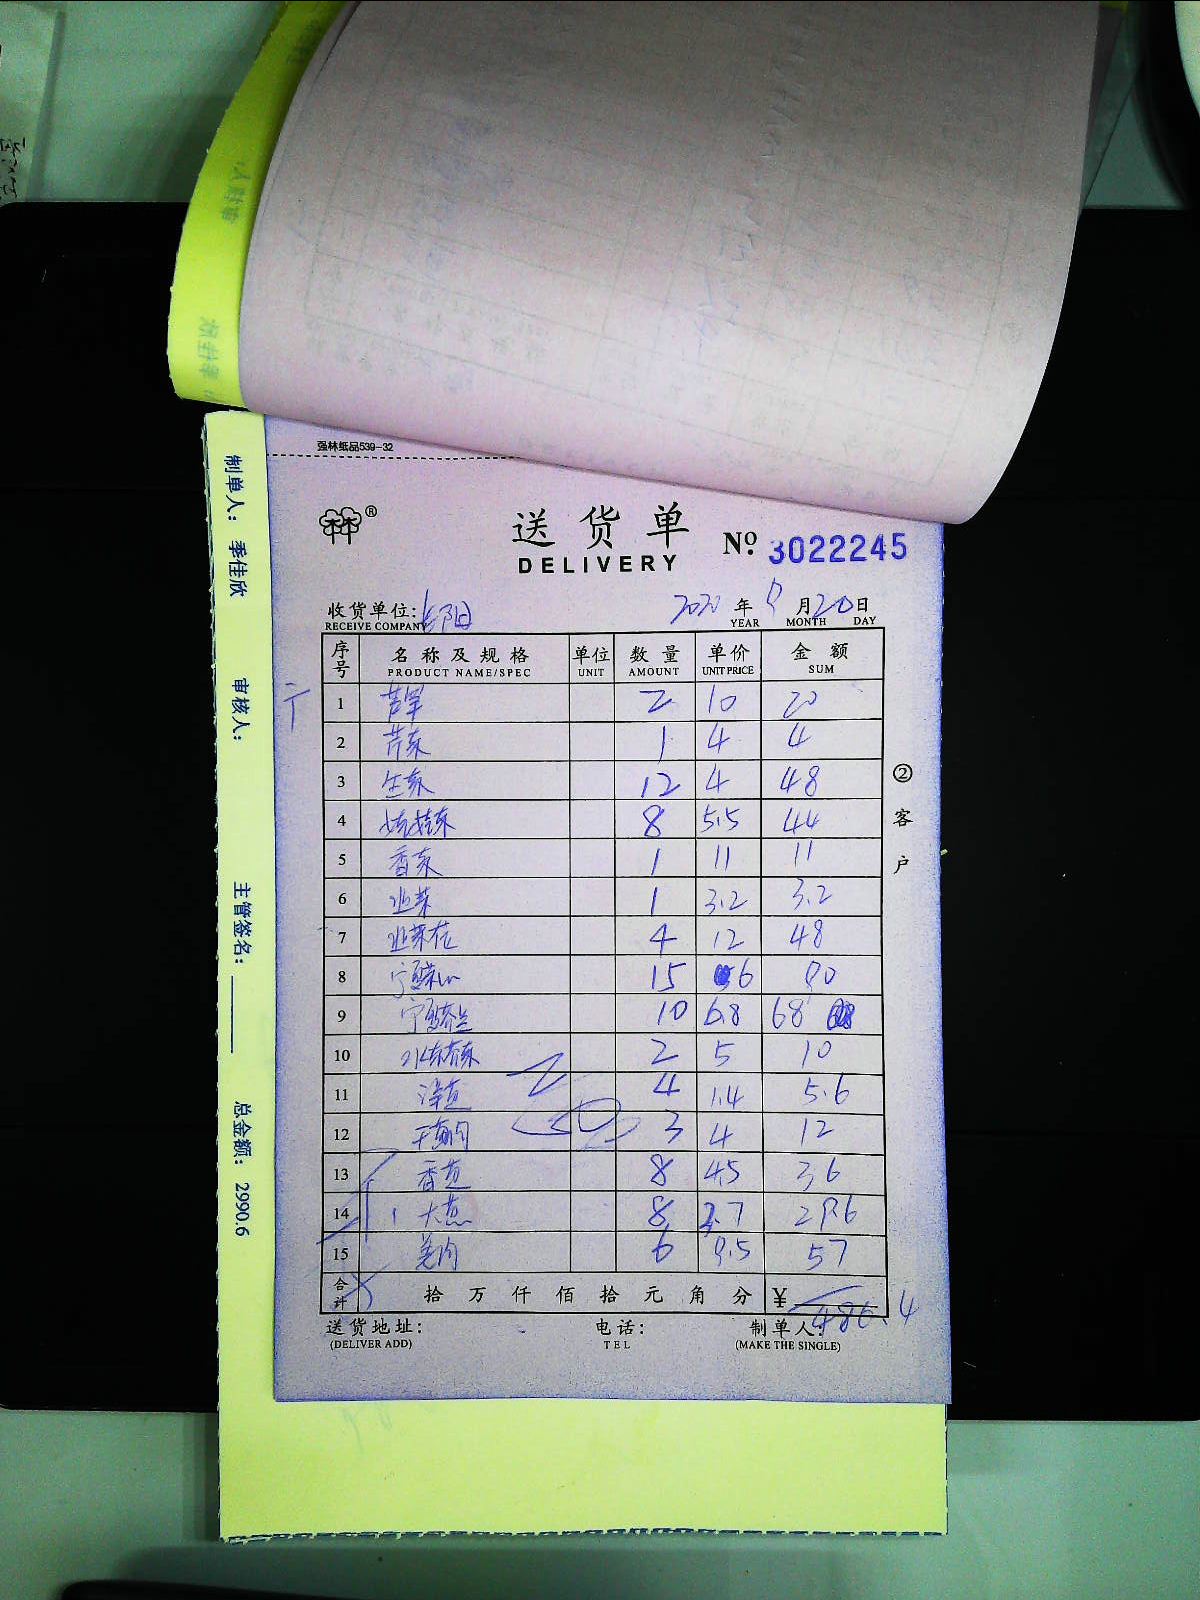 强林纸品539-32
送货单
DELIVERY
№ 3022245
收货单位:
RECEIVE COMPANY
2020 年 9 月 20 日
YEAR MONTH DAY
序号 名称及规格 单位 数量 单价 金额
PRODUCT NAME/SPEC UNIT AMOUNT UNIT PRICE SUM
1 2 10 20
2 芹菜 1 4 4
3 生菜 12 4 48
4 8 5.5 44
5 香菜 1 11 11
6 韭菜 1 3.2 3.2
7 韭菜花 4 12 48
8 宁夏菜心 15 6 90
9 宁夏芥兰 10 6.8 68
10 2 5 10
11 洋葱 4 1.4 5.6
12 3 4 12
13 香葱 8 4.5 36
14 大葱 8 3.7 29.6
15 6 9.5 57
合计 拾 万 仟 佰 拾 元 角 分 ¥ 486.4
送货地址: 电话: 制单人:
(DELIVER ADD) TEL (MAKE THE SINGLE)
② 客户
制单人: 季佳欣 审核人: 主管签名: 总金额: 2990.6